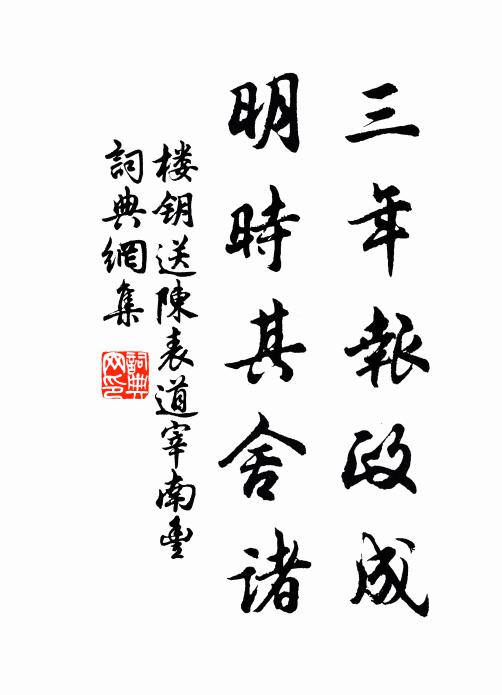 三年報政成
明時其舍諸
楼钥送陳表道宰南豐
詞典網集
詞典網印